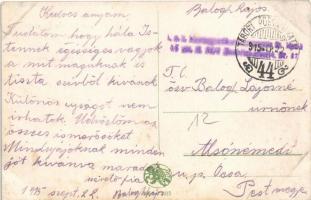 Kedves anyám
Balogh Lajos.
Tudatom hogy hála Is-
tennek egésséges vagyok
a mit maguknak és
tiszta szivből kivánok
Különös ujságot nem
irhatok. Üdvözlöm az
össces ismerősöket
Mindnyájoknak minden
jót kivánva marad
szerető fia
1915 szept. 22. Balogh Lajos
TÁBORI POSTAHIVATAL
915
44
T. C.
özv Balog Lajosne
urnőnek
12
Alsónémedi
u. p. Ócsa
Pest megye